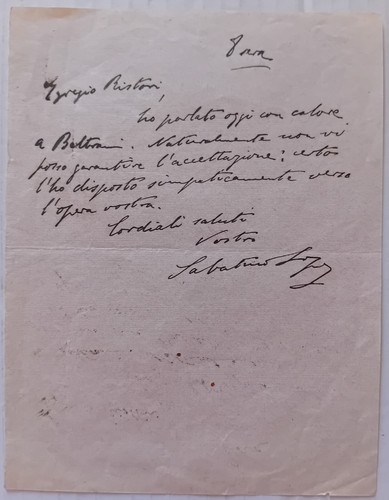 Egregio Ristori,
ho parlato oggi con calore
a Beltrami. Naturalmente non vi
posso garantire l'accettazione: certo
l'ho disposto simpaticamente verso
l'opera vostra.
Cordiali saluti
Vostro
Sabatino Lopez